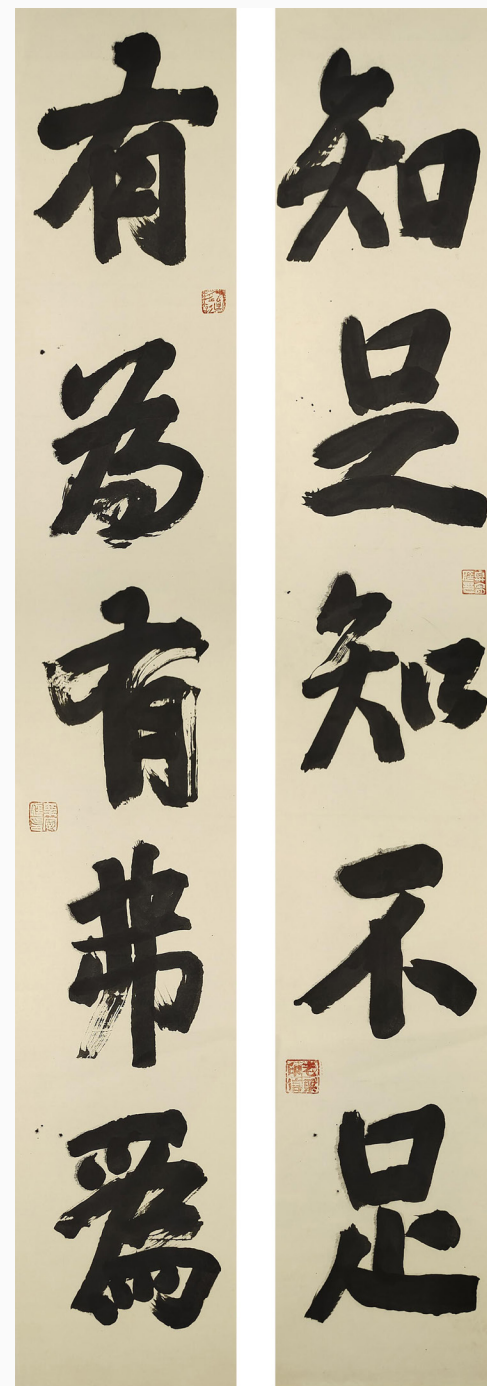 知足知不足
有為有弗爲